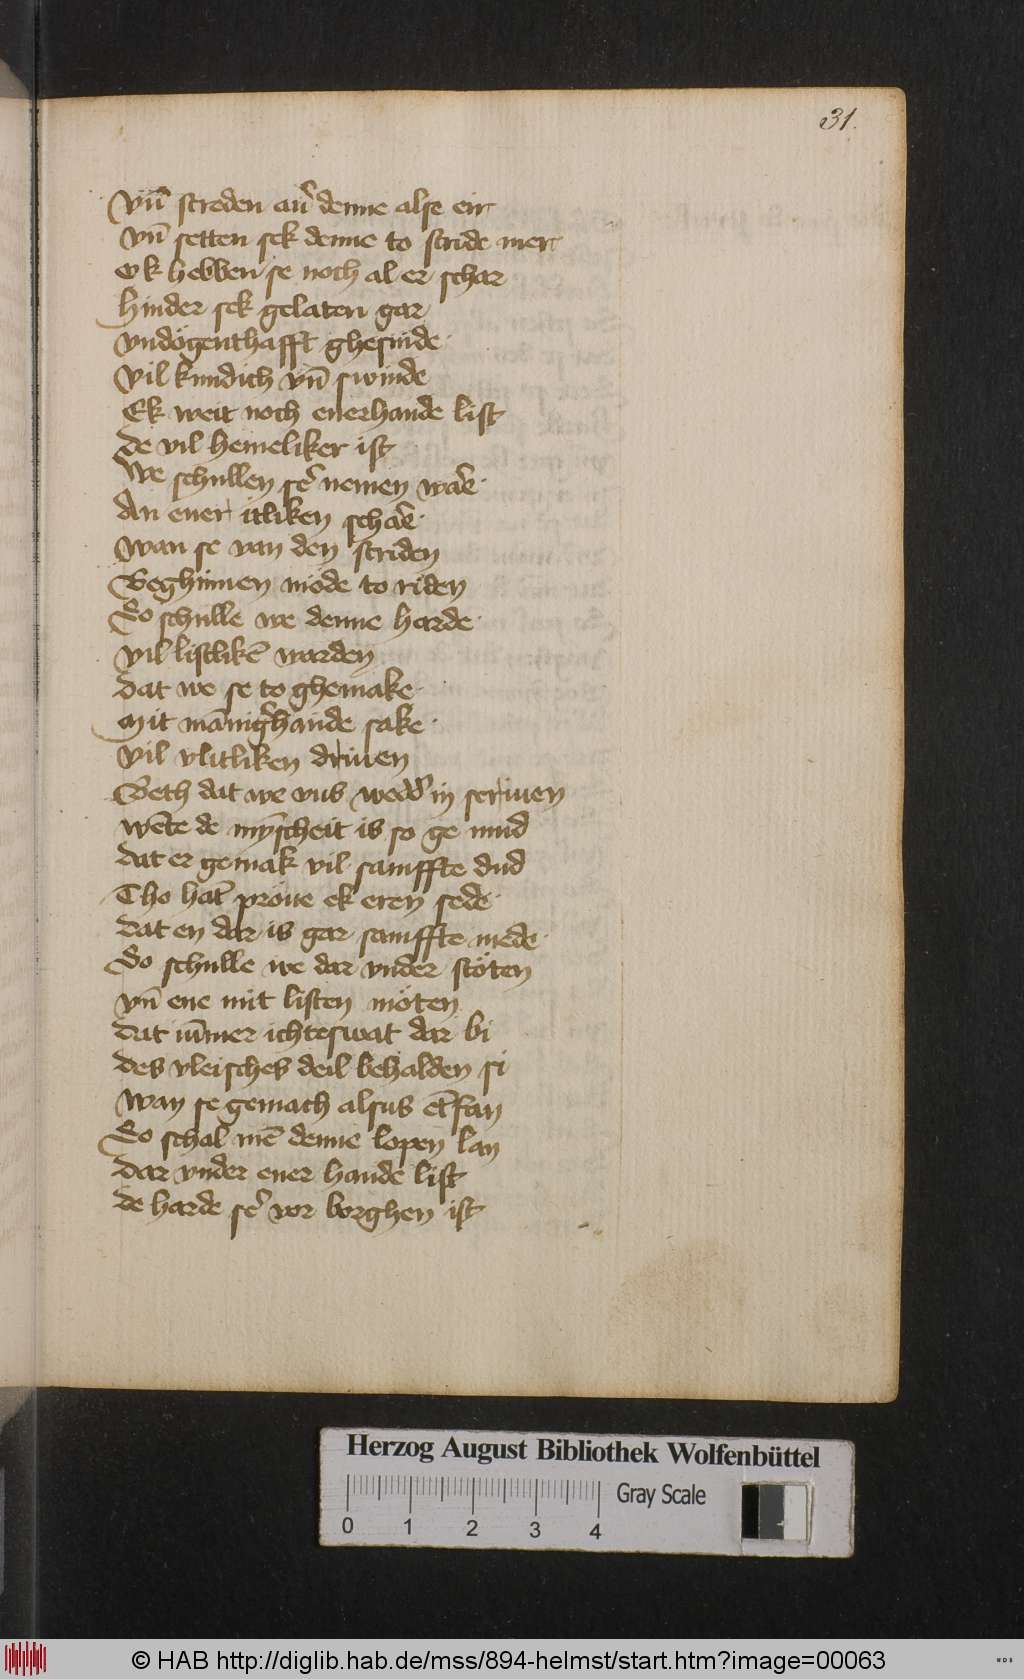 31.
Vn̄ streden an̛ denne alse eir
vn̄ setten sek denne to stride mer
Ok hebben se noch al er schar
Hinder sek gelaten gar
vndögenthafft ghesinde
Vil kundich vn̄ swinde
Ek weit noch enerhande list
de vil hemeliker ist
We schullen se᷑ nemen wa᷑e
An ener itliken scha᷑e
wan se van den striden
Beghinnen mode to riden
So schulle we denne harde
vil listlikē warden
dat we se to ghemake
Mit mānig᷑hande sake
Vil vlitliken driuen
Beth dat we vns wedd᷑ in scriuen
wēte de mȳscheit is so ge mud
dat er gemak vil sanffte dud
Tho hat᷑ pröue ek eren sede
dat en dar is gar sanffte mede
So schulle we dar vnder stöten
vn̄ ene mit listen möten
dat iūmer ichteswat dar bi
des vleisches deil behalden si
wan se gemach alsus ētfan
So schal mē denne lopen lan
dar vnder ener hande list
de harde se᷑ vor borghen ist
Herzog August Bibliothek Wolfenbüttel
Gray Scale
0 1 2 3 4
© HAB http://diglib.hab.de/mss/894-helmst/start.htm?image=00063